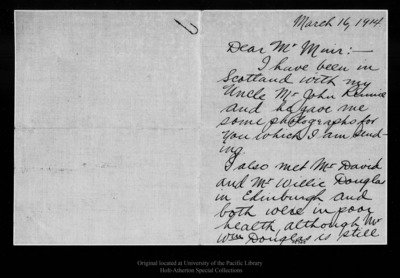 March 16, 1914
Dear Mr Muir:—
I have been in
Scotland with my
Uncle Mr John
and he gave me
some photographs for
you which I am send-
ing.
I also met Mr David
and Mr Willie Douglas
in Edinburgh and
both were in poor
health, although Mr
Wm Douglas is still
Original located at University of the Pacific Library
Holt-Atherton Special Collections